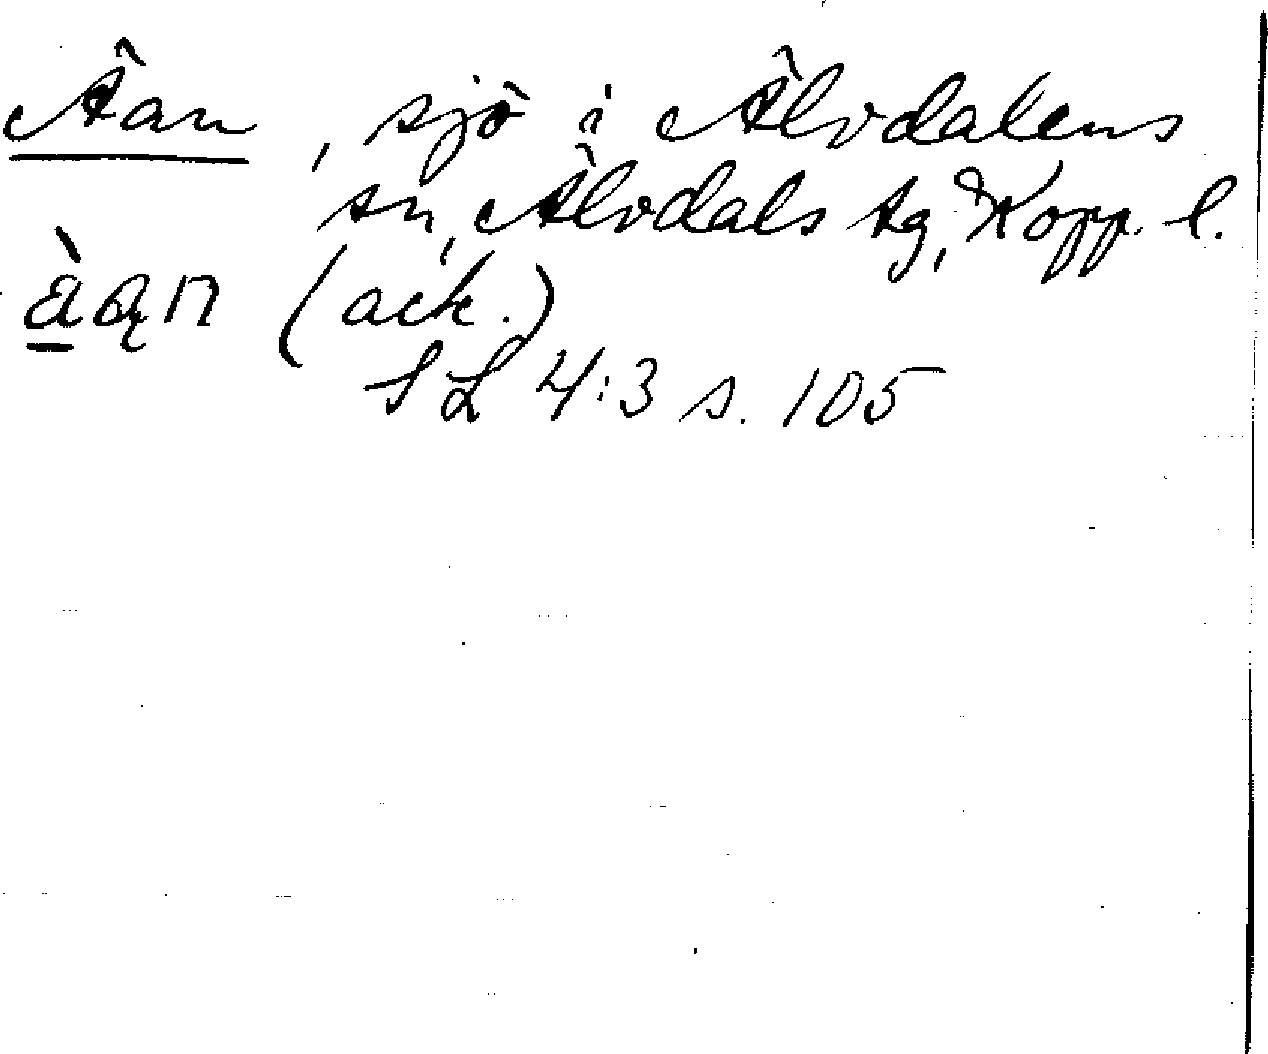 Äan, sjö i Älvdalens
sn, Älvdals tg, Kopp. l.
(ack.)
SL 4:3 s. 105